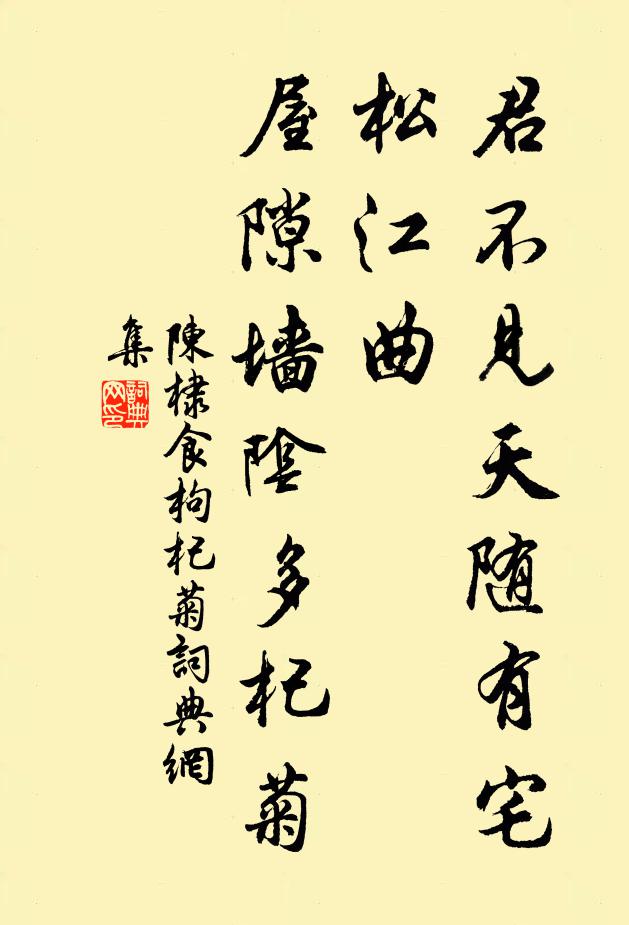 君不見天随有宅
松江曲
屋隙墙陰多杞菊
陳棣食枸杞菊詞典網
集
詞典
网印